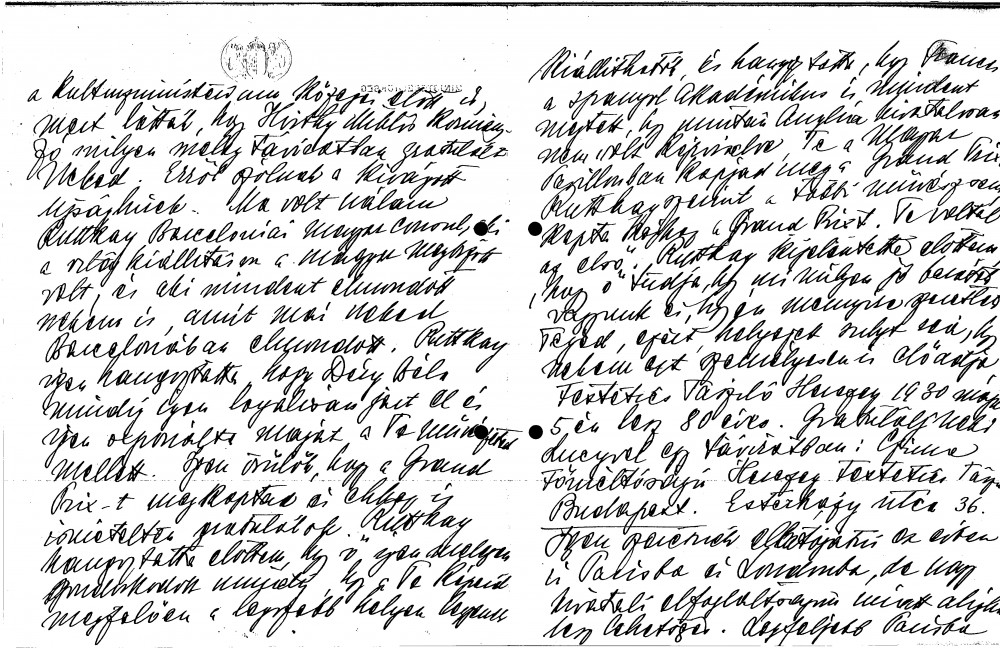 a Kulturministérium közegei előtt is,
mert látták, hogy Horthy Miklós Kormány-
zó milyen meleg táviratban gratulált
Neked. Erről szólnak a kivágott
ujsághirek. Ma volt nálam
Ruttkay Barcelonai magyar consul, aki
a világkiállitáson a magyar megbizott
volt, és aki mindent elmondott
nekem is, amit már neked
Barcelonában elmondott. Ruttkay
igen hangoztatta, hogy Déry Béla
mindig igen loyálisan járt el és
igen exponálta magát a Te műveid
mellett. Igen örülök, hogy a Grand
Prix-t megkaptad és ehhez is
ismételten gratulálok. Ruttkay
hangoztatta előttem, hogy ő igen melegen
gondoskodott mindig, hogy a Te képeid
megfelően a legszebb helyen legyenek
kiállithatók, és hangoztatta, hogy
a spanyol Akadémikus is mindent
megtett, hogy miután Anglia hivatalosan
nem volt képviselve Te a Magyar
Pavillonban kapjad meg a Grand Prix
Ruttkay szerint a többi művész sem
kapta a Grand Prixt. Te voltál
az első. Ruttkay kijelentette előttem,
hogy ő tudja, hogy mi milyen jó barátok
vagyunk és, hogy én mennyire szeretlek
Téged, ezért helyezett sulyt reá, hogy
nekem ezt személyesen is előadja
Festetics Tászló Herceg 1930 máj
5 én lesz 80 éves. Gratulálj neki
Lucyvel egy táviratban: Cime
Főméltóságú Herceg Festetics
Budapest. Esterházy utca 36.
Igen szeretnék ellátogatni ez évben
is Parisba és Londonba, de nagy
hivatali elfoglaltságom miatt aligha
lesz lehetséges. Legfeljebb Parisba